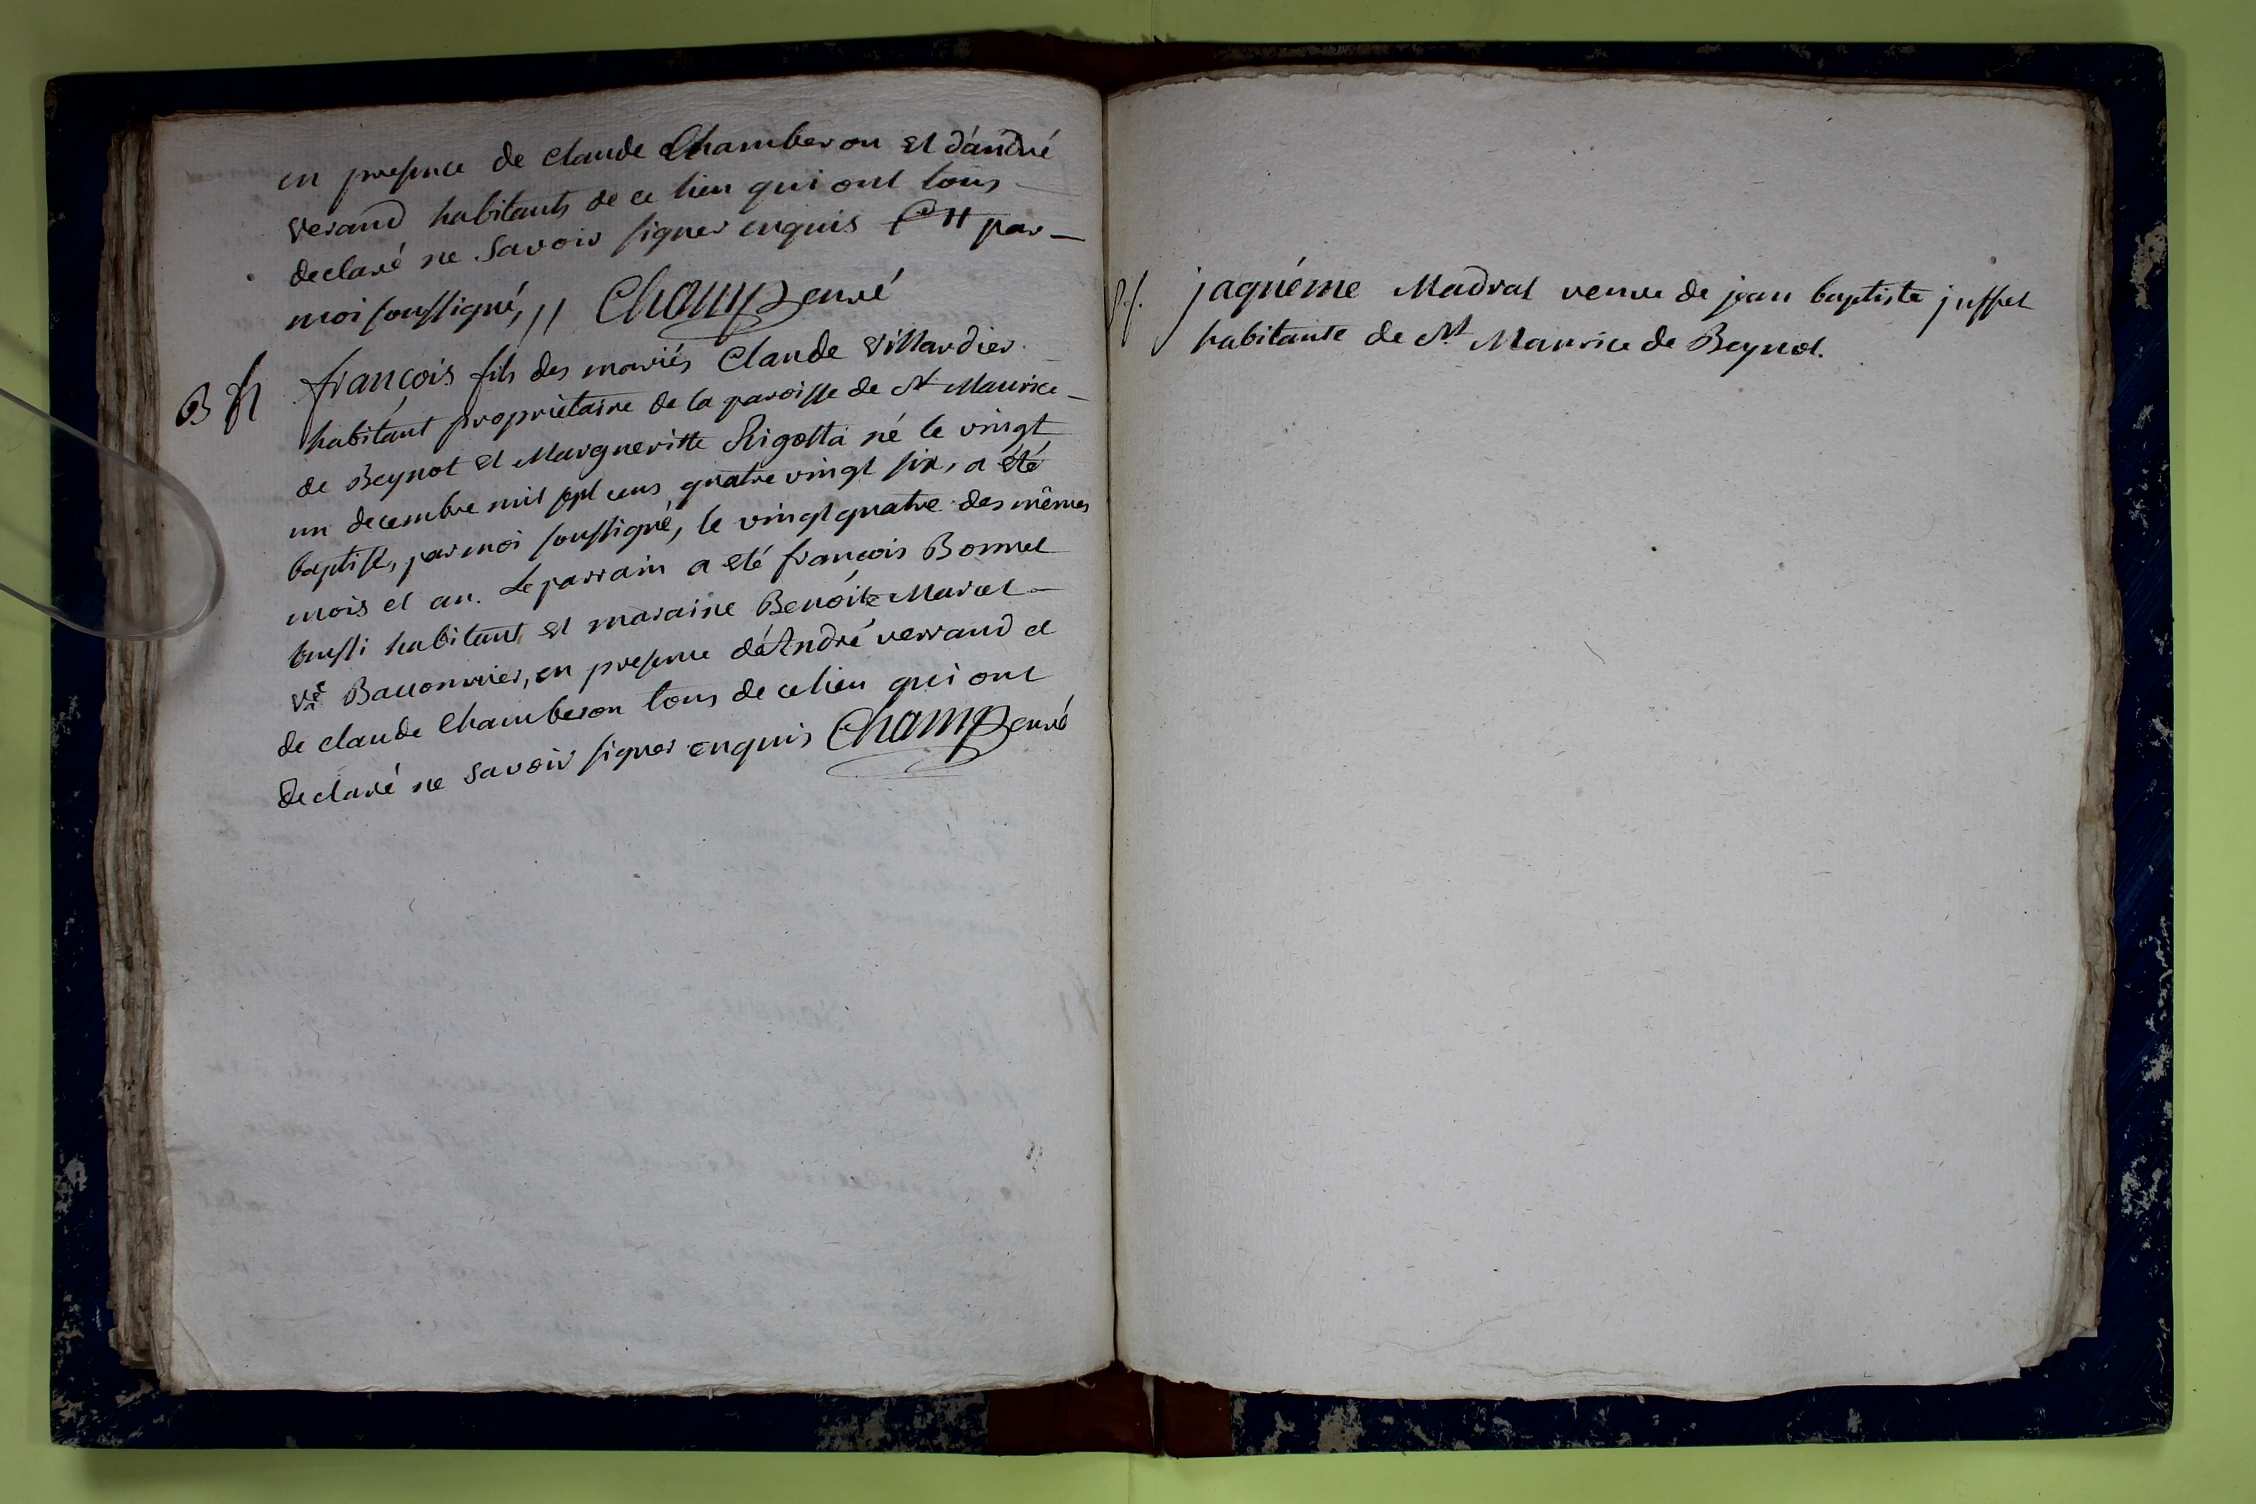 en presence de claude Chamberon et d'andré
Verand habitants de ce lieu qui ont tous
declaré ne savoir signer enquis par
moi soussigné, // Champ curé
B fr françois fils des mariés Claude Villardier
habitant propriétaire de la paroisse de St Maurice
de Beynot et Margueritte Rigotta né le vingt
un decembre mil sept cens quatre vingt six, a été
baptisé, par moi soussigné, le vingt quatre des mêmes
mois et an. Le parrain a été françois Bonnet
aussi habitant et maraine Benoite Marcel
Ve Baconnier, en presence d'André verrand et
de claude Chamberon tous de ce lieu qui ont
declaré ne savoir signer enquis Champ curé
S. f. jaquéme Madrat veuve de jean baptiste juffet
habitante de St Maurice de Beynot.